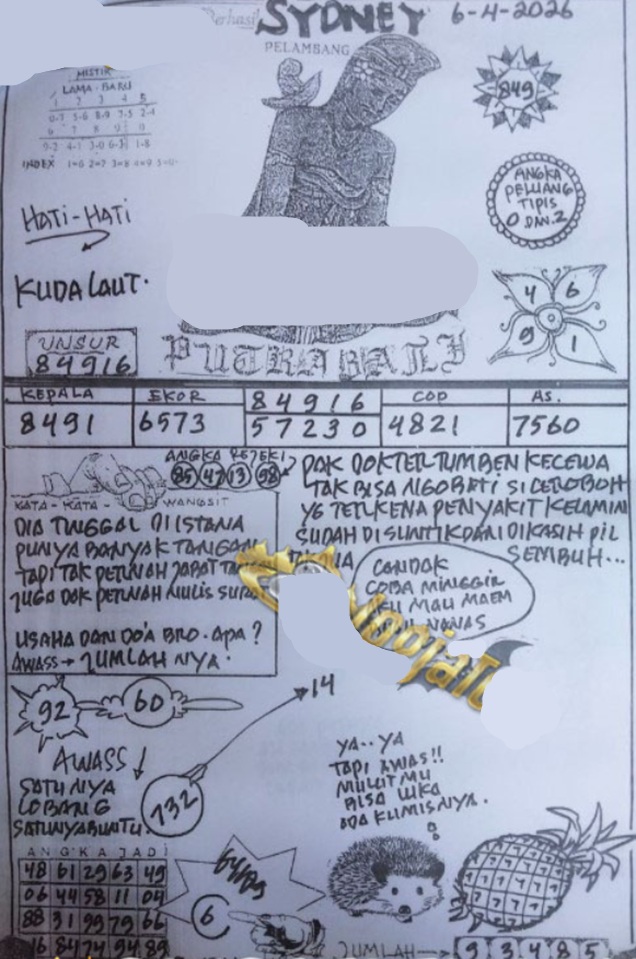 SYDNEY 6-4-2026
PELAMBANG
MISTIK
LAMA-BARU
1 2 3 4 5
0-7 5-6 8-9 2-4
6 7 8 9 0
4-1 3-0 1-8
INDEX 1=6 2=7 3=8 4=9
849
ANGKA
PELUANG
TIPIS
0 DAN 2
HATI-HATI
KUDA LAUT.
4 6
9 1
UNSUR
84916
PUTRA BALI
KEPALA EKOR 84916 COP AS.
8491 6573 57230 4821 7560
ANGKA REJEKI
85 47 13 98
KATA-KATA- WANGSIT
DIA TINGGAL DI ISTANA
PUNYA BANYAK TANGAN
TAPI TAK PERNAH JABAT
JUGA DAK PERNAH NULIS
USAHA DAN DO'A BRO. APA?
AWASS → JUMLAH NYA.
PAK DOKTER TUMBEN KECEWA
TAK BISA NGOBATI SI CEROBOH
YG TERKENA PENYAKIT KELAMIN
SUDAH DISUNTIK DAN DIKASIH PIL
SEMBUH...
LANDAK
COBA MINGGIR
AKU MAU MAEM
NANAS
92 60
14
AWASS
SATU NYA
LOBANG
SATUNYA BUNTU.
732
YA..YA
TAPI AWAS!!
MULUTMU
BISA LUKA
ADA KUMISNYA.
ANGKA JADI
48 61 29 63 49
06 44 58 11 04
88 31 99 79 66
16 84 74 94 89
6
JUMLAH → 9 3 4 8 5